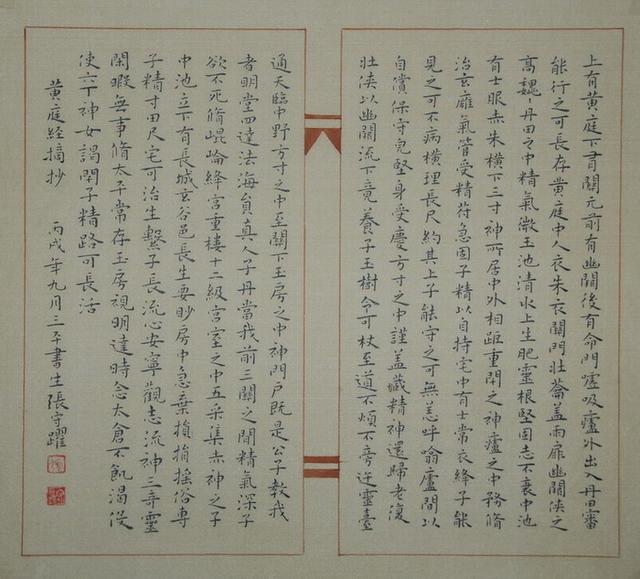 上有黄庭下有關元前有幽關後有命門嘘吸廬外出入丹田審
能行之可長存黄庭中人衣朱衣關門壯蘥盖兩扉幽關俠之
高魏〻丹田之中精氣微玉池清水上生肥靈根堅固志不衰中池
有士服赤朱横下三寸神所居中外相距重閉之神廬之中務脩
治玄廱氣管受精苻急固子精以自持宅中有士常衣絳子能
見之可不病横理長尺約其上子能守之可無恙呼噏廬間以
自償保守完堅身受慶方寸之中謹盖藏精神還歸老復
壯俠以幽關流下竟養子玉樹令可杖至道不煩不旁迕靈臺
通天臨中野方寸之中至關下玉房之中神門户既是公子教我
者明堂四達法海員真人子丹當我前三關之間精氣深子
欲不死脩崐崘絳宫重樓十二級宫室之中五采集赤神之子
中池立下有長城玄谷邑長生要眇房中急棄捐捐揺俗專
子精寸田尺宅可治生繫子長流心安寧觀志流神三奇靈
閑暇無事脩太平常存玉房視明達時念太倉不飢渴役
使六丁神女謁閉子精路可長活
黄庭经摘抄 丙戌年九月三平書生張守躍